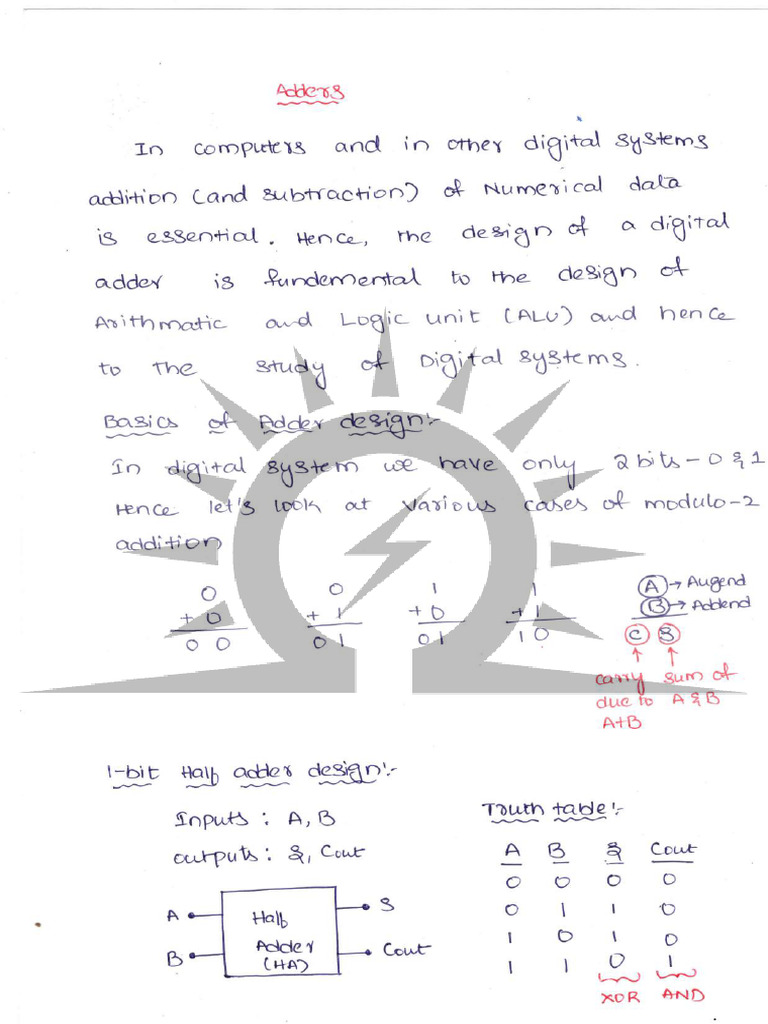 Adders
In computers and in other digital systems
addition (and subtraction) of Numerical data
is essential. Hence, the design of a digital
adder is fundemental to the design of
Arithmatic and Logic unit (ALU) and hence
to the study of Digital systems.
Basics of Adder design:-
In digital system we have only 2 bits - 0 & 1
Hence let's look at various cases of modulo-2
addition
0 0 1 1 A → Augend
+ 0 + 1 + 0 + 1 B → Addend
0 0 0 1 0 1 1 0 C S
carry sum of
due to A & B
A+B
1-bit Half adder design:-
Inputs : A, B
outputs : S, Cout
A
B
Half
Adder
(HA)
S
Cout
Truth table:-
A B S Cout
0 0 0 0
0 1 1 0
1 0 1 0
1 1 0 1
XOR AND